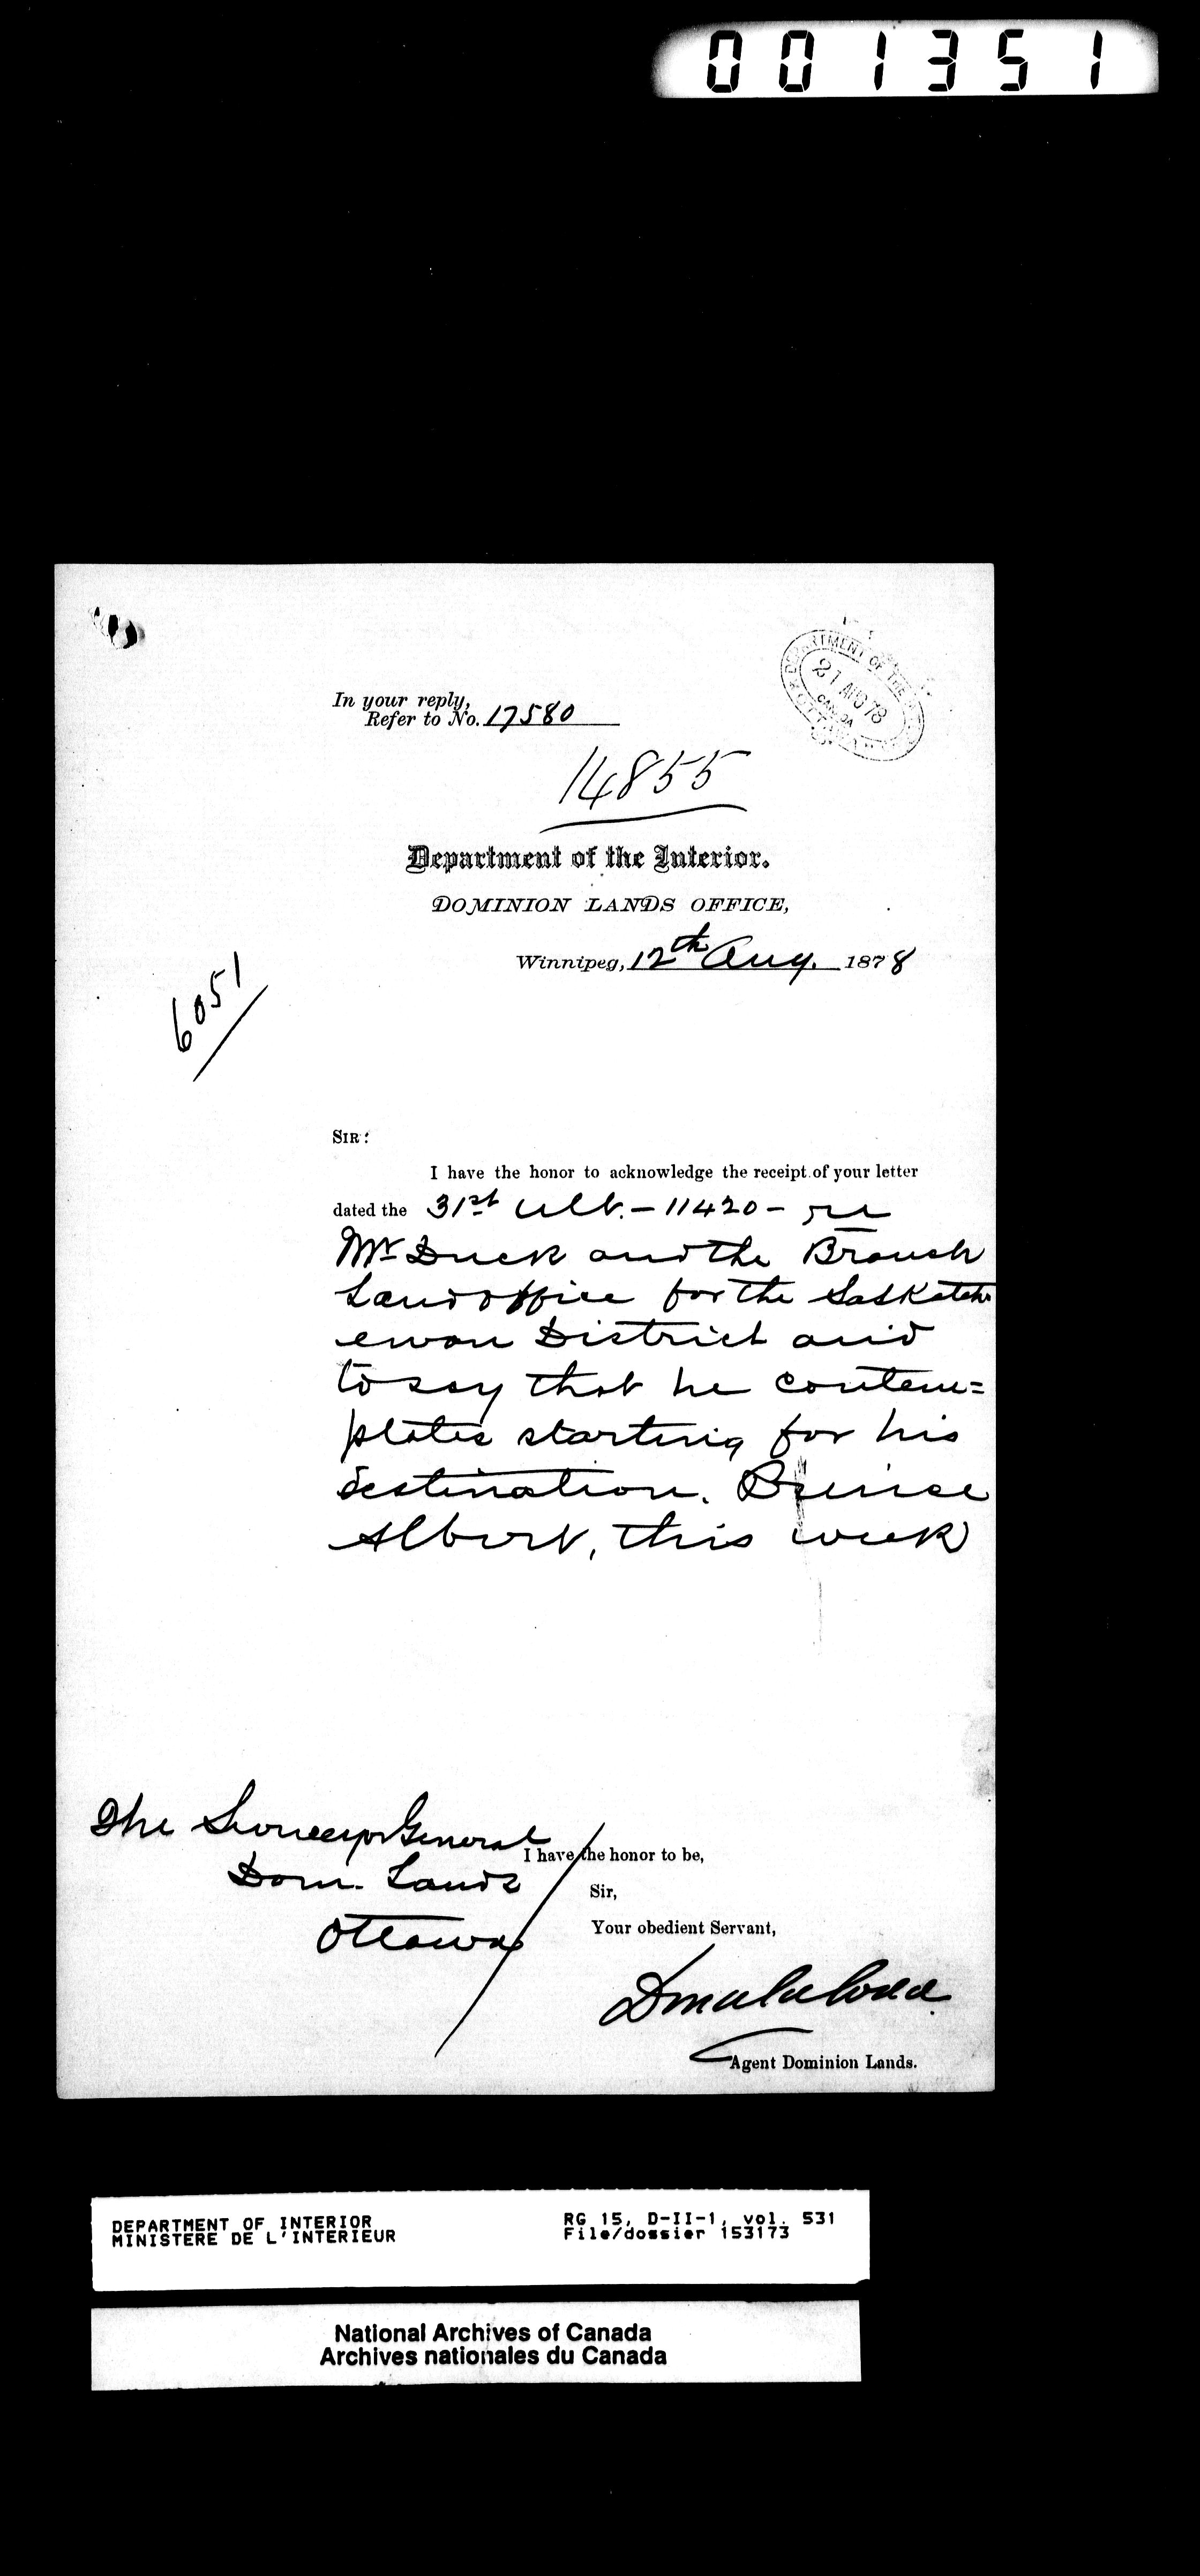 001351
DEPARTMENT OF THE
21 AUG 78
CANADA
OTTAWA
In your reply,
Refer to No. 17580
14855
Department of the Interior.
DOMINION LANDS OFFICE,
Winnipeg, 12th Aug. 1878
6051
SIR:
I have the honor to acknowledge the receipt of your letter
dated the 31st ult. – 11420 – re
Mr Duck and the Branch
Land office for the Saskatch
ewan District and
to say that he contem=
plates starting for his
destination, Prince
Albert, this week
The Surveyor General
Dom. Lands
Ottawa
I have the honor to be,
Sir,
Your obedient Servant,
Codd
Agent Dominion Lands.
DEPARTMENT OF INTERIOR
MINISTERE DE L'INTERIEUR
RG 15, D-II-1, vol. 531
File/dossier 153173
National Archives of Canada
Archives nationales du Canada